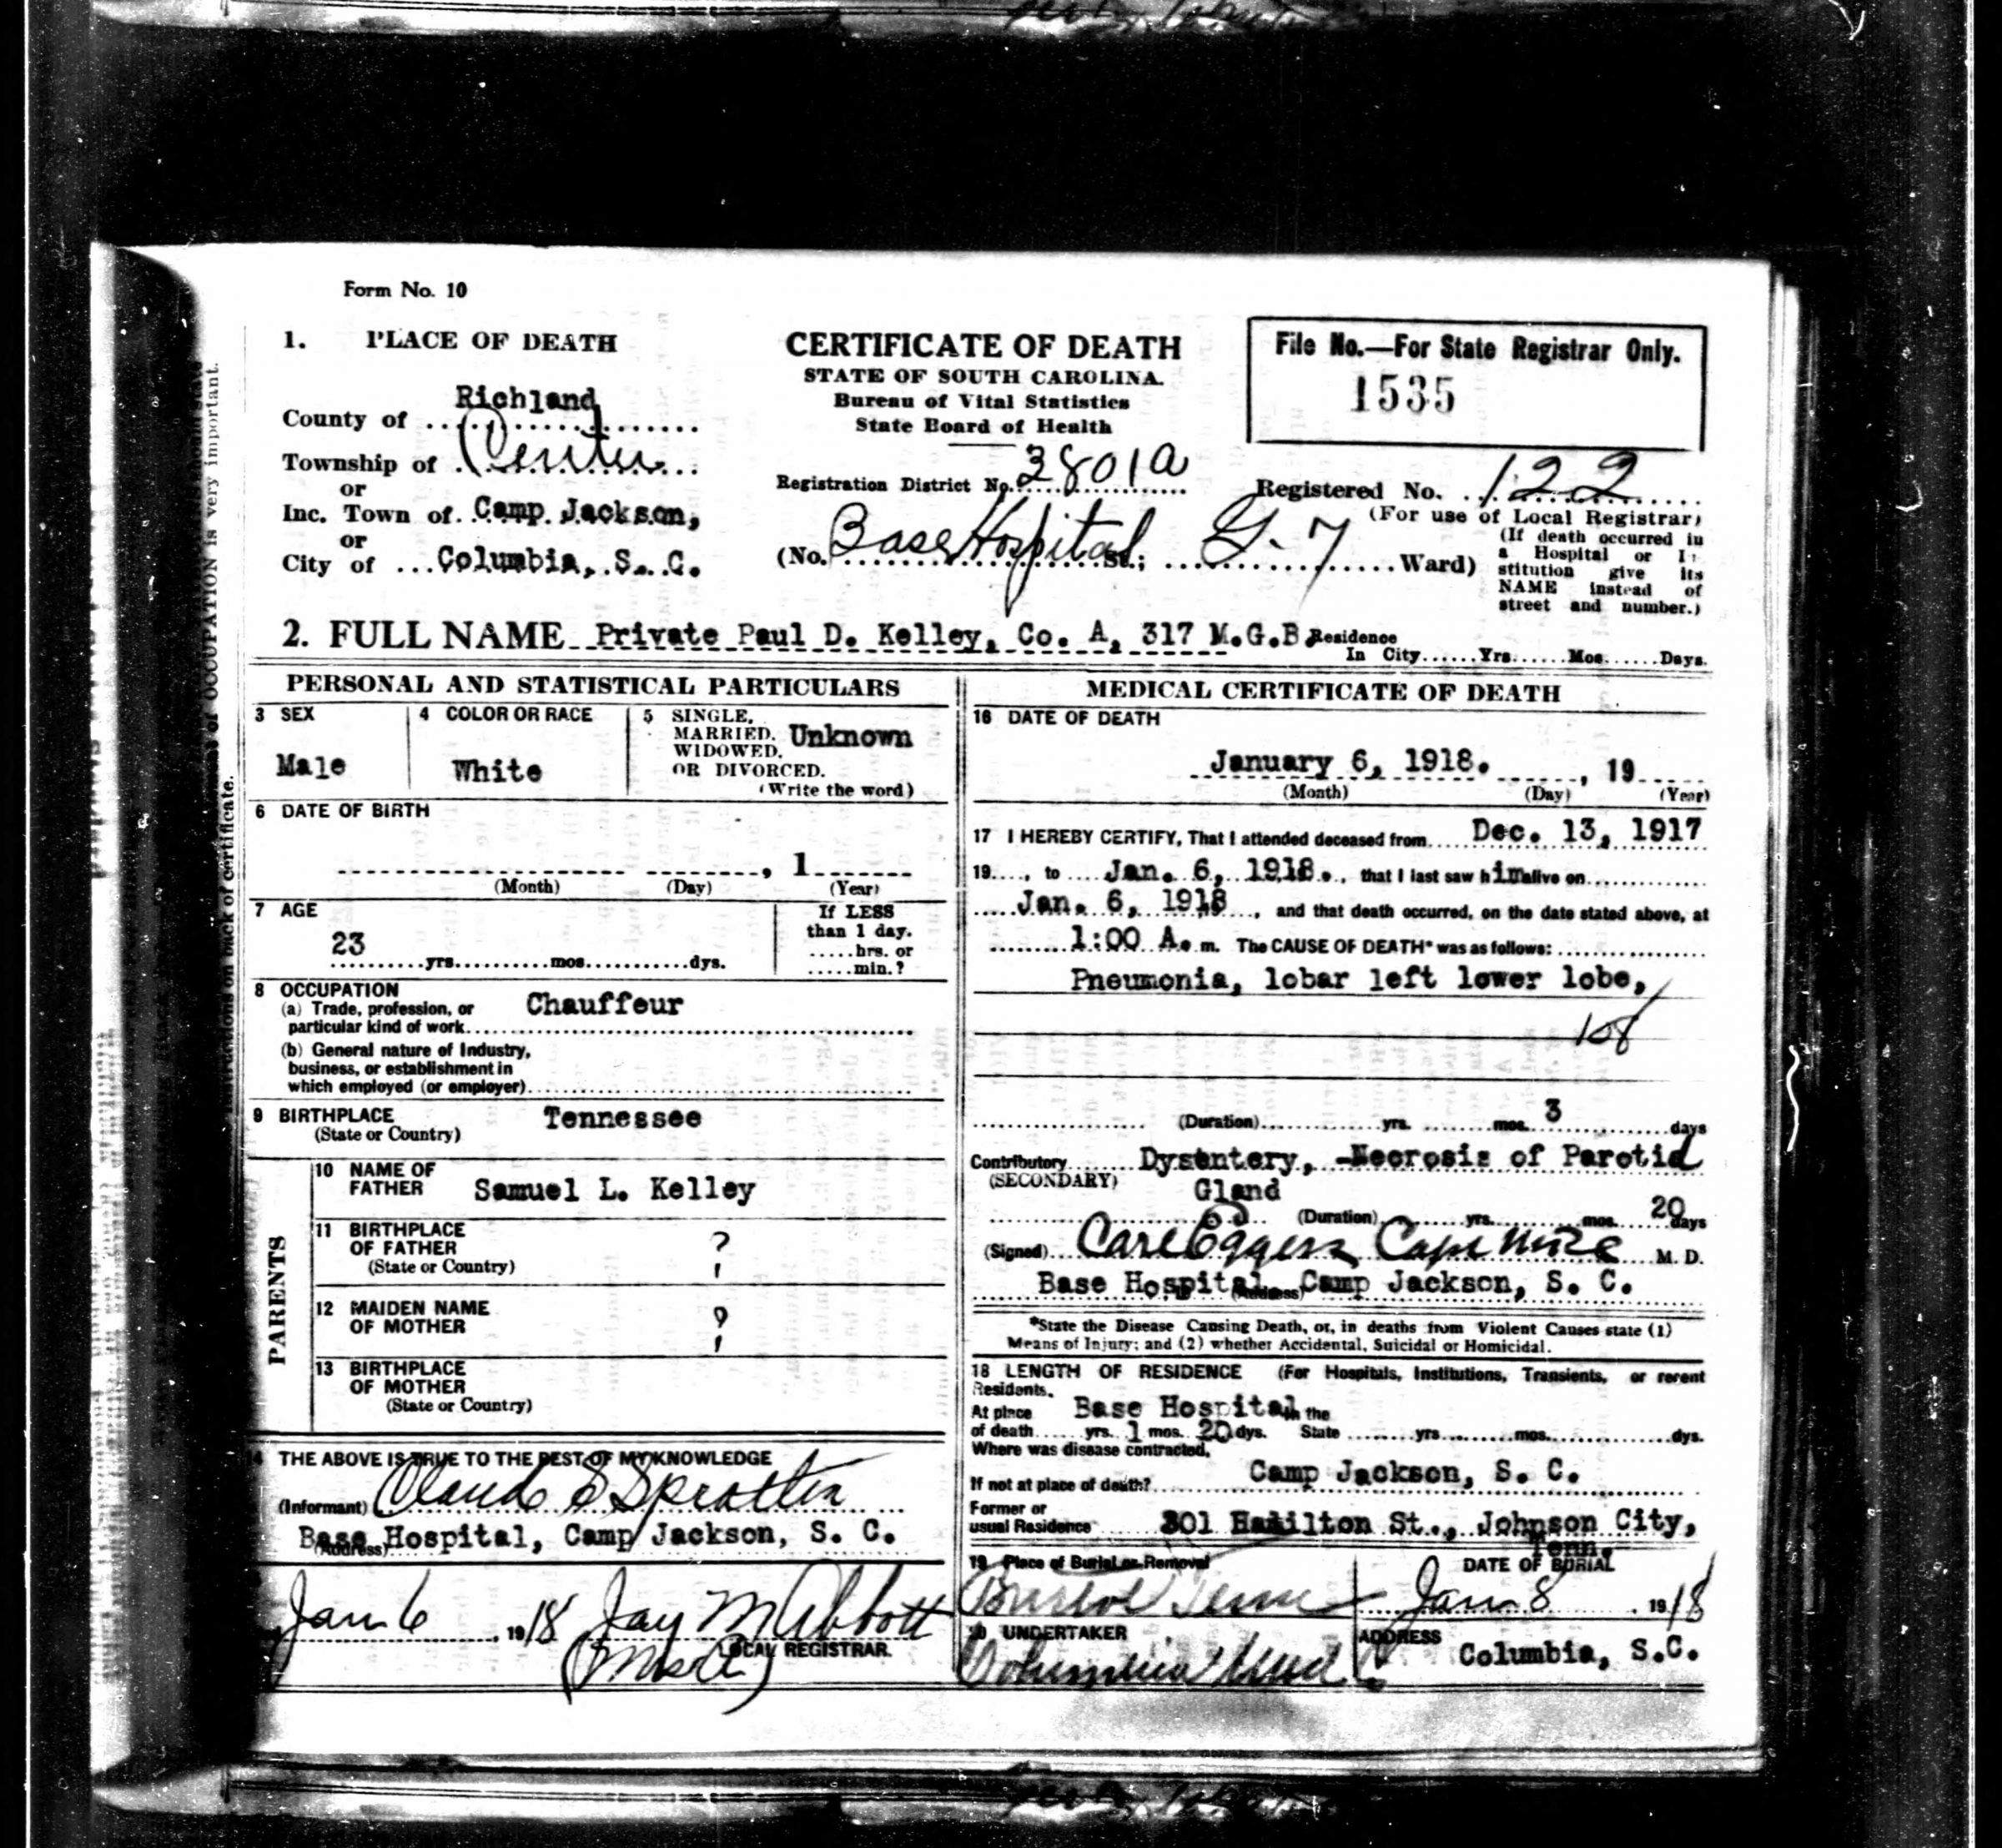 Form No. 10
1. PLACE OF DEATH
County of Richland
Township of Center
or
Inc. Town of Camp Jackson,
or
City of Columbia, S. C.
CERTIFICATE OF DEATH
STATE OF SOUTH CAROLINA.
Bureau of Vital Statistics
State Board of Health
Registration District No. 3801a
(No. Base Hospital St.; G-7 Ward)
File No.—For State Registrar Only.
1535
Registered No. 122
(For use of Local Registrar)
(If death occurred in
a Hospital or
stitution give its
NAME instead of
street and number.)
2. FULL NAME Private Paul D. Kelley, Co. A, 317 M.G.B. Residence
In City......Yrs......Mos......Days.
PERSONAL AND STATISTICAL PARTICULARS
3 SEX
Male
4 COLOR OR RACE
White
5 SINGLE,
MARRIED,
WIDOWED,
OR DIVORCED.
(Write the word)
Unknown
6 DATE OF BIRTH
, 1
(Month) (Day) (Year)
7 AGE
23
yrs. mos. dys.
If LESS
than 1 day.
.....hrs. or
.....min.?
8 OCCUPATION
(a) Trade, profession, or
particular kind of work
Chauffeur
(b) General nature of Industry,
business, or establishment in
which employed (or employer)
9 BIRTHPLACE
(State or Country)
Tennessee
PARENTS
10 NAME OF
FATHER
Samuel L. Kelley
11 BIRTHPLACE
OF FATHER
(State or Country)
?
12 MAIDEN NAME
OF MOTHER
?
13 BIRTHPLACE
OF MOTHER
(State or Country)
THE ABOVE IS TRUE TO THE BEST OF MY KNOWLEDGE
(Informant) Claude S
(Address) Base Hospital, Camp Jackson, S. C.
Jan 6, 1918 Jay M Abbott
LOCAL REGISTRAR.
MEDICAL CERTIFICATE OF DEATH
16 DATE OF DEATH
January 6, 1918. , 19
(Month) (Day) (Year)
17 I HEREBY CERTIFY, That I attended deceased from Dec. 13, 1917
19...., to Jan. 6, 1918., that I last saw him alive on
Jan. 6, 1918, and that death occurred, on the date stated above, at
1:00 A. m. The CAUSE OF DEATH* was as follows:
Pneumonia, lobar left lower lobe,
108
(Duration) yrs. mos. 3 days
Contributory Dysentery, -Necrosis of Parotid
(SECONDARY) Gland
(Duration) yrs. mos. 20 days
(Signed) Carl Eggers Capt M.D.
Base Hospital, (Address) Camp Jackson, S. C.
*State the Disease Causing Death, or, in deaths from Violent Causes state (1)
Means of Injury; and (2) whether Accidental, Suicidal or Homicidal.
18 LENGTH OF RESIDENCE (For Hospitals, Institutions, Transients, or recent
Residents.
At place Base Hospital In the
of death yrs. 1 mos. 20 dys. State yrs. mos. dys.
Where was disease contracted,
If not at place of death? Camp Jackson, S. C.
Former or
usual Residence 301 Hamilton St., Johnson City,
Tenn.
19 Place of Burial or Removal
Bristol Tenn
DATE OF BURIAL
Jan 8, 1918
UNDERTAKER
Columbia
ADDRESS
Columbia, S.C.
OCCUPATION is very important.
instructions on back of certificate.